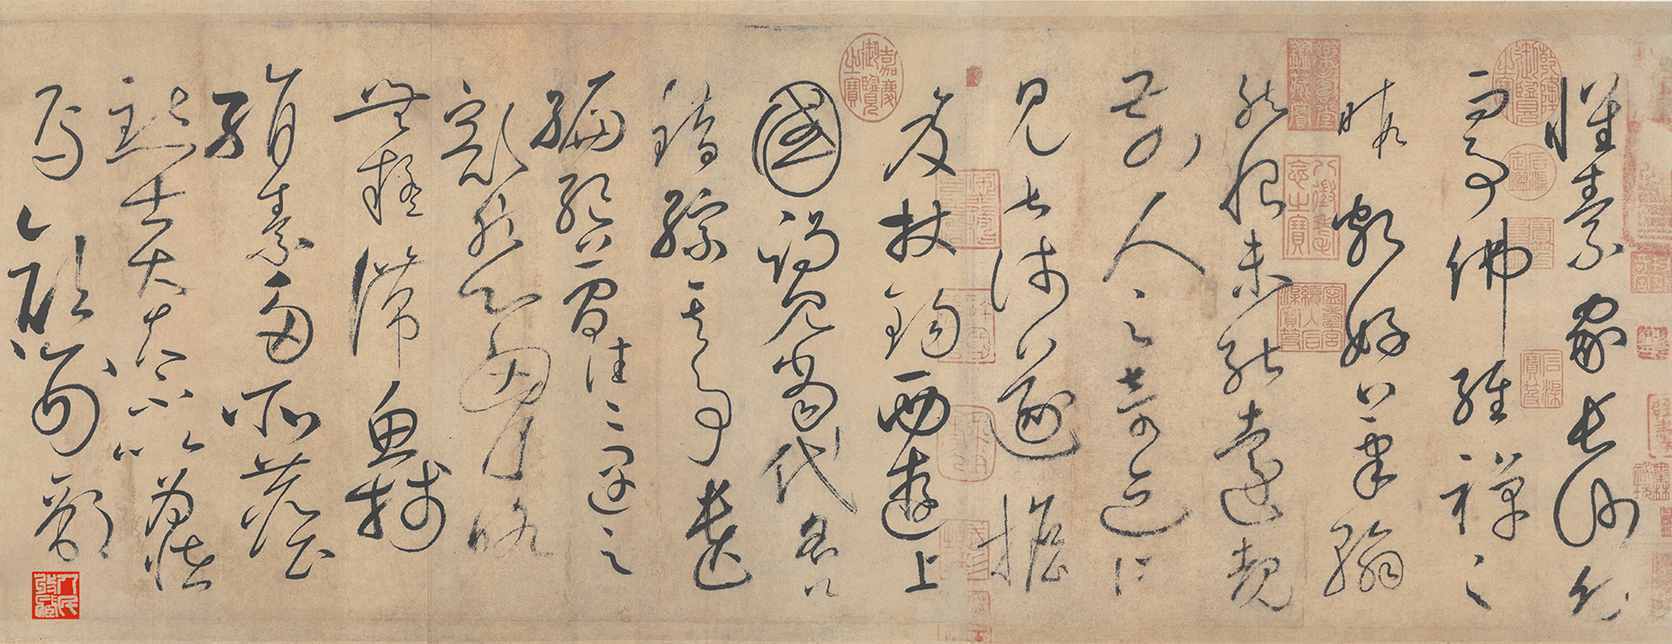 懷素家長沙幼
而事佛經禪之
暇頗好筆翰
然恨未能遠覩
前人之奇迹所
見甚淺遂擔
笈杖錫西遊上
國謁見當代名公
錯綜其事遺
編絕簡往〻遇之
豁然心胸略
無疑滯魚牋
絹素多所塵
點士大夫不以為怪
焉顏刑部
乾隆御覽之寶
八徵耄念之寶
嘉慶御覽之寶